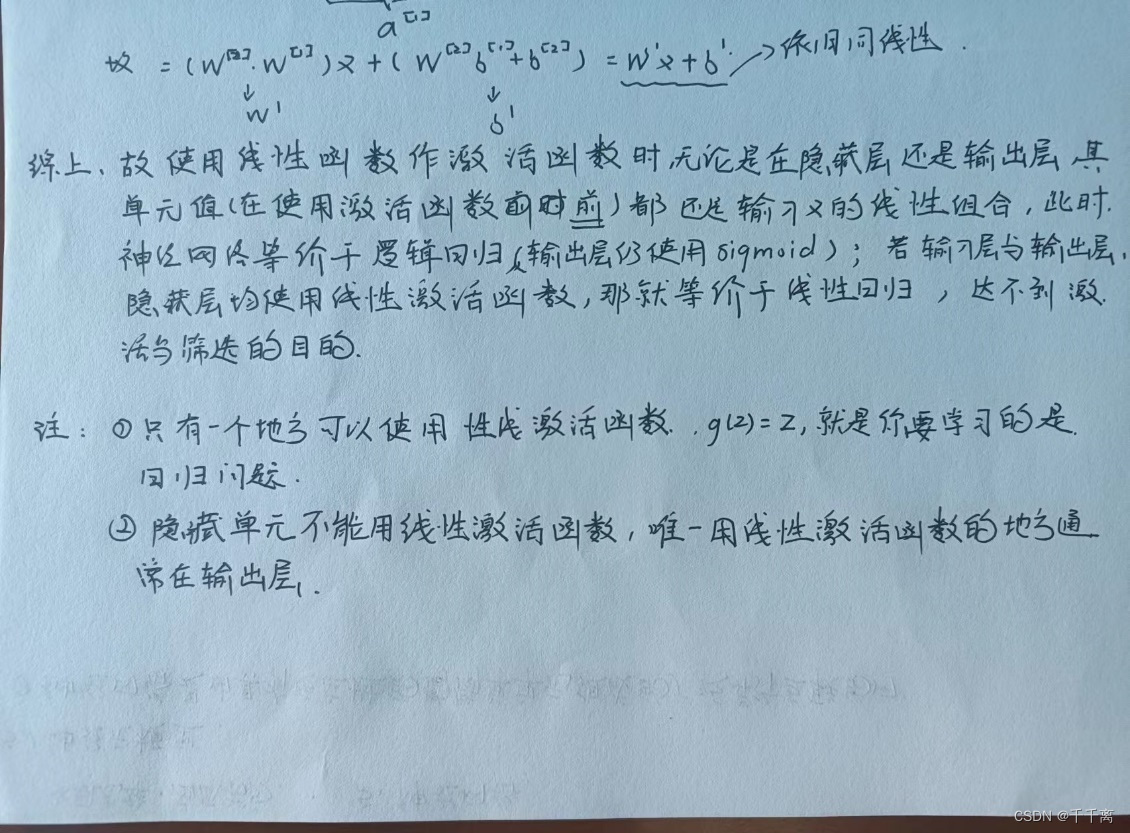 a[1]
故 = (W[2]·W[1])x + (W[2]b[1]+b[2]) = W'x+b' → 依旧同线性.
↓ ↓
W' b'
综上、故使用线性函数作激活函数时,无论是在隐藏层还是输出层,其
单元值(在使用激活函数前时前)都还是输入x的线性组合,此时.
神经网络等价于逻辑回归(输出层仍使用sigmoid);若输入层与输出层,
隐藏层均使用线性激活函数,那就等价于线性回归,达不到激.
活与筛选的目的.
注:①只有一个地方可以使用性线激活函数.,g(z)=z,就是你要学习的是.
回归问题.
②隐藏单元不能用线性激活函数,唯一用线性激活函数的地方通
常在输出层.
CSDN @千千离